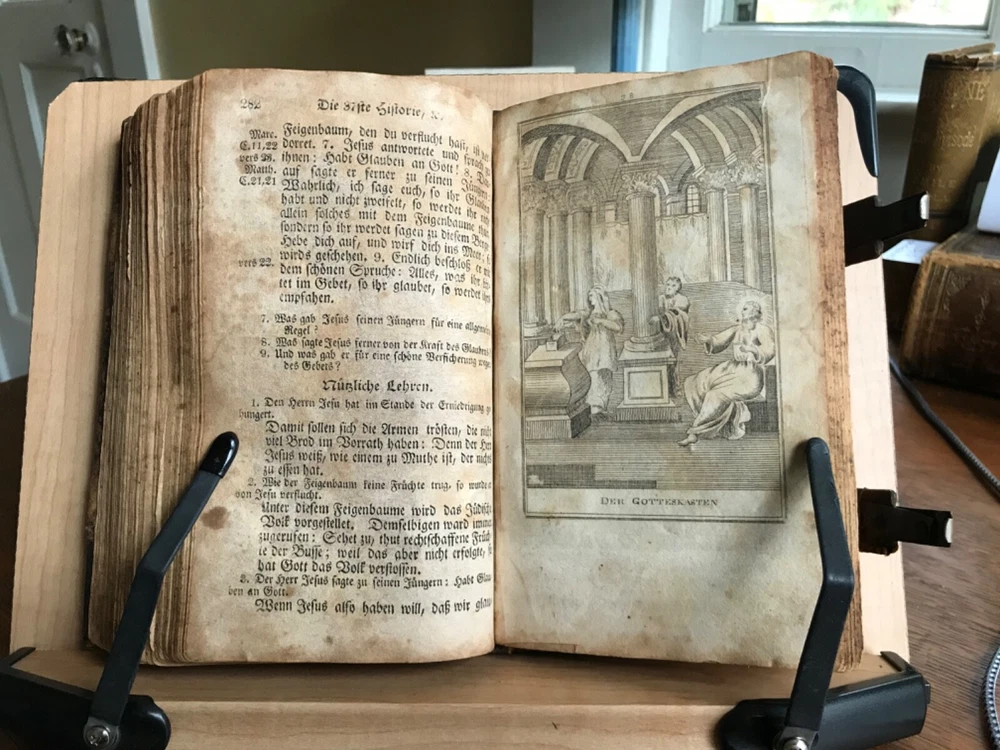 282 Die 37ste Historie, ꝛc.
Marc. Feigenbaum, den du verflucht hast, ist
C. 11,22 dorret. 7. Jesus antwortete und sprach
vers 23. ihnen: Habt Glauben an Gott! 8.
Matth. auf sagte er ferner zu seinen Jüngern
C. 21,21 Wahrlich, ich sage euch, so ihr Glauben
habt und nicht zweifelt, so werdet ihr
allein solches mit dem Feigenbaume
sondern so ihr werdet sagen zu diesem Berge
Hebe dich auf, und wirf dich ins Meer;
wirds geschehen. 9. Endlich beschloß er
vers 22. dem schönen Spruche: Alles, was ihr
tet im Gebet, so ihr glaubet, so werdet
empfahen.
7. Was gab Jesus seinen Jüngern für eine
Regel?
8. Was sagte Jesus ferner von der Kraft des Glaubens
9. Und was gab er für eine schöne Versicherung
des Gebets?
Nützliche Lehren.
1. Den Herrn Jesu hat im Stande der Erniedrigung
hungert.
Damit sollen sich die Armen trösten, die
viel Brod im Vorrath haben: Denn der
Jesus weiß, wie einem zu Muthe ist, der
zu essen hat.
2. Wie der Feigenbaum keine Früchte trug, so wurde
von Jesu verflucht.
Unter diesem Feigenbaume wird das
Volk vorgestellet. Demselbigen ward
zugerufen: Sehet zu, thut rechtschaffene
te der Busse; weil das aber nicht erfolgte,
hat Gott das Volk verstossen.
3. Der Herr Jesus sagte zu seinen Jüngern: Habt
ben an Gott.
Wenn Jesus also haben will, daß wir
DER GOTTESKASTEN